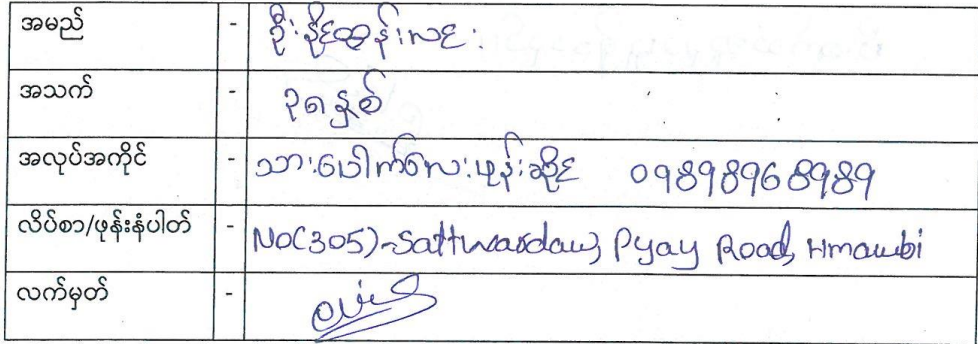 အမည် - ဦးနိုင်ထွန်းလင်း
အသက် - ၃၈ နှစ်
အလုပ်အကိုင် - သားပေါက်လေးဖုန်းဆိုင် 09898968989
လိပ်စာ/ဖုန်းနံပါတ် - NO(305)-Sattwardaw, Pyay Road, Hmawbi
လက်မှတ် -